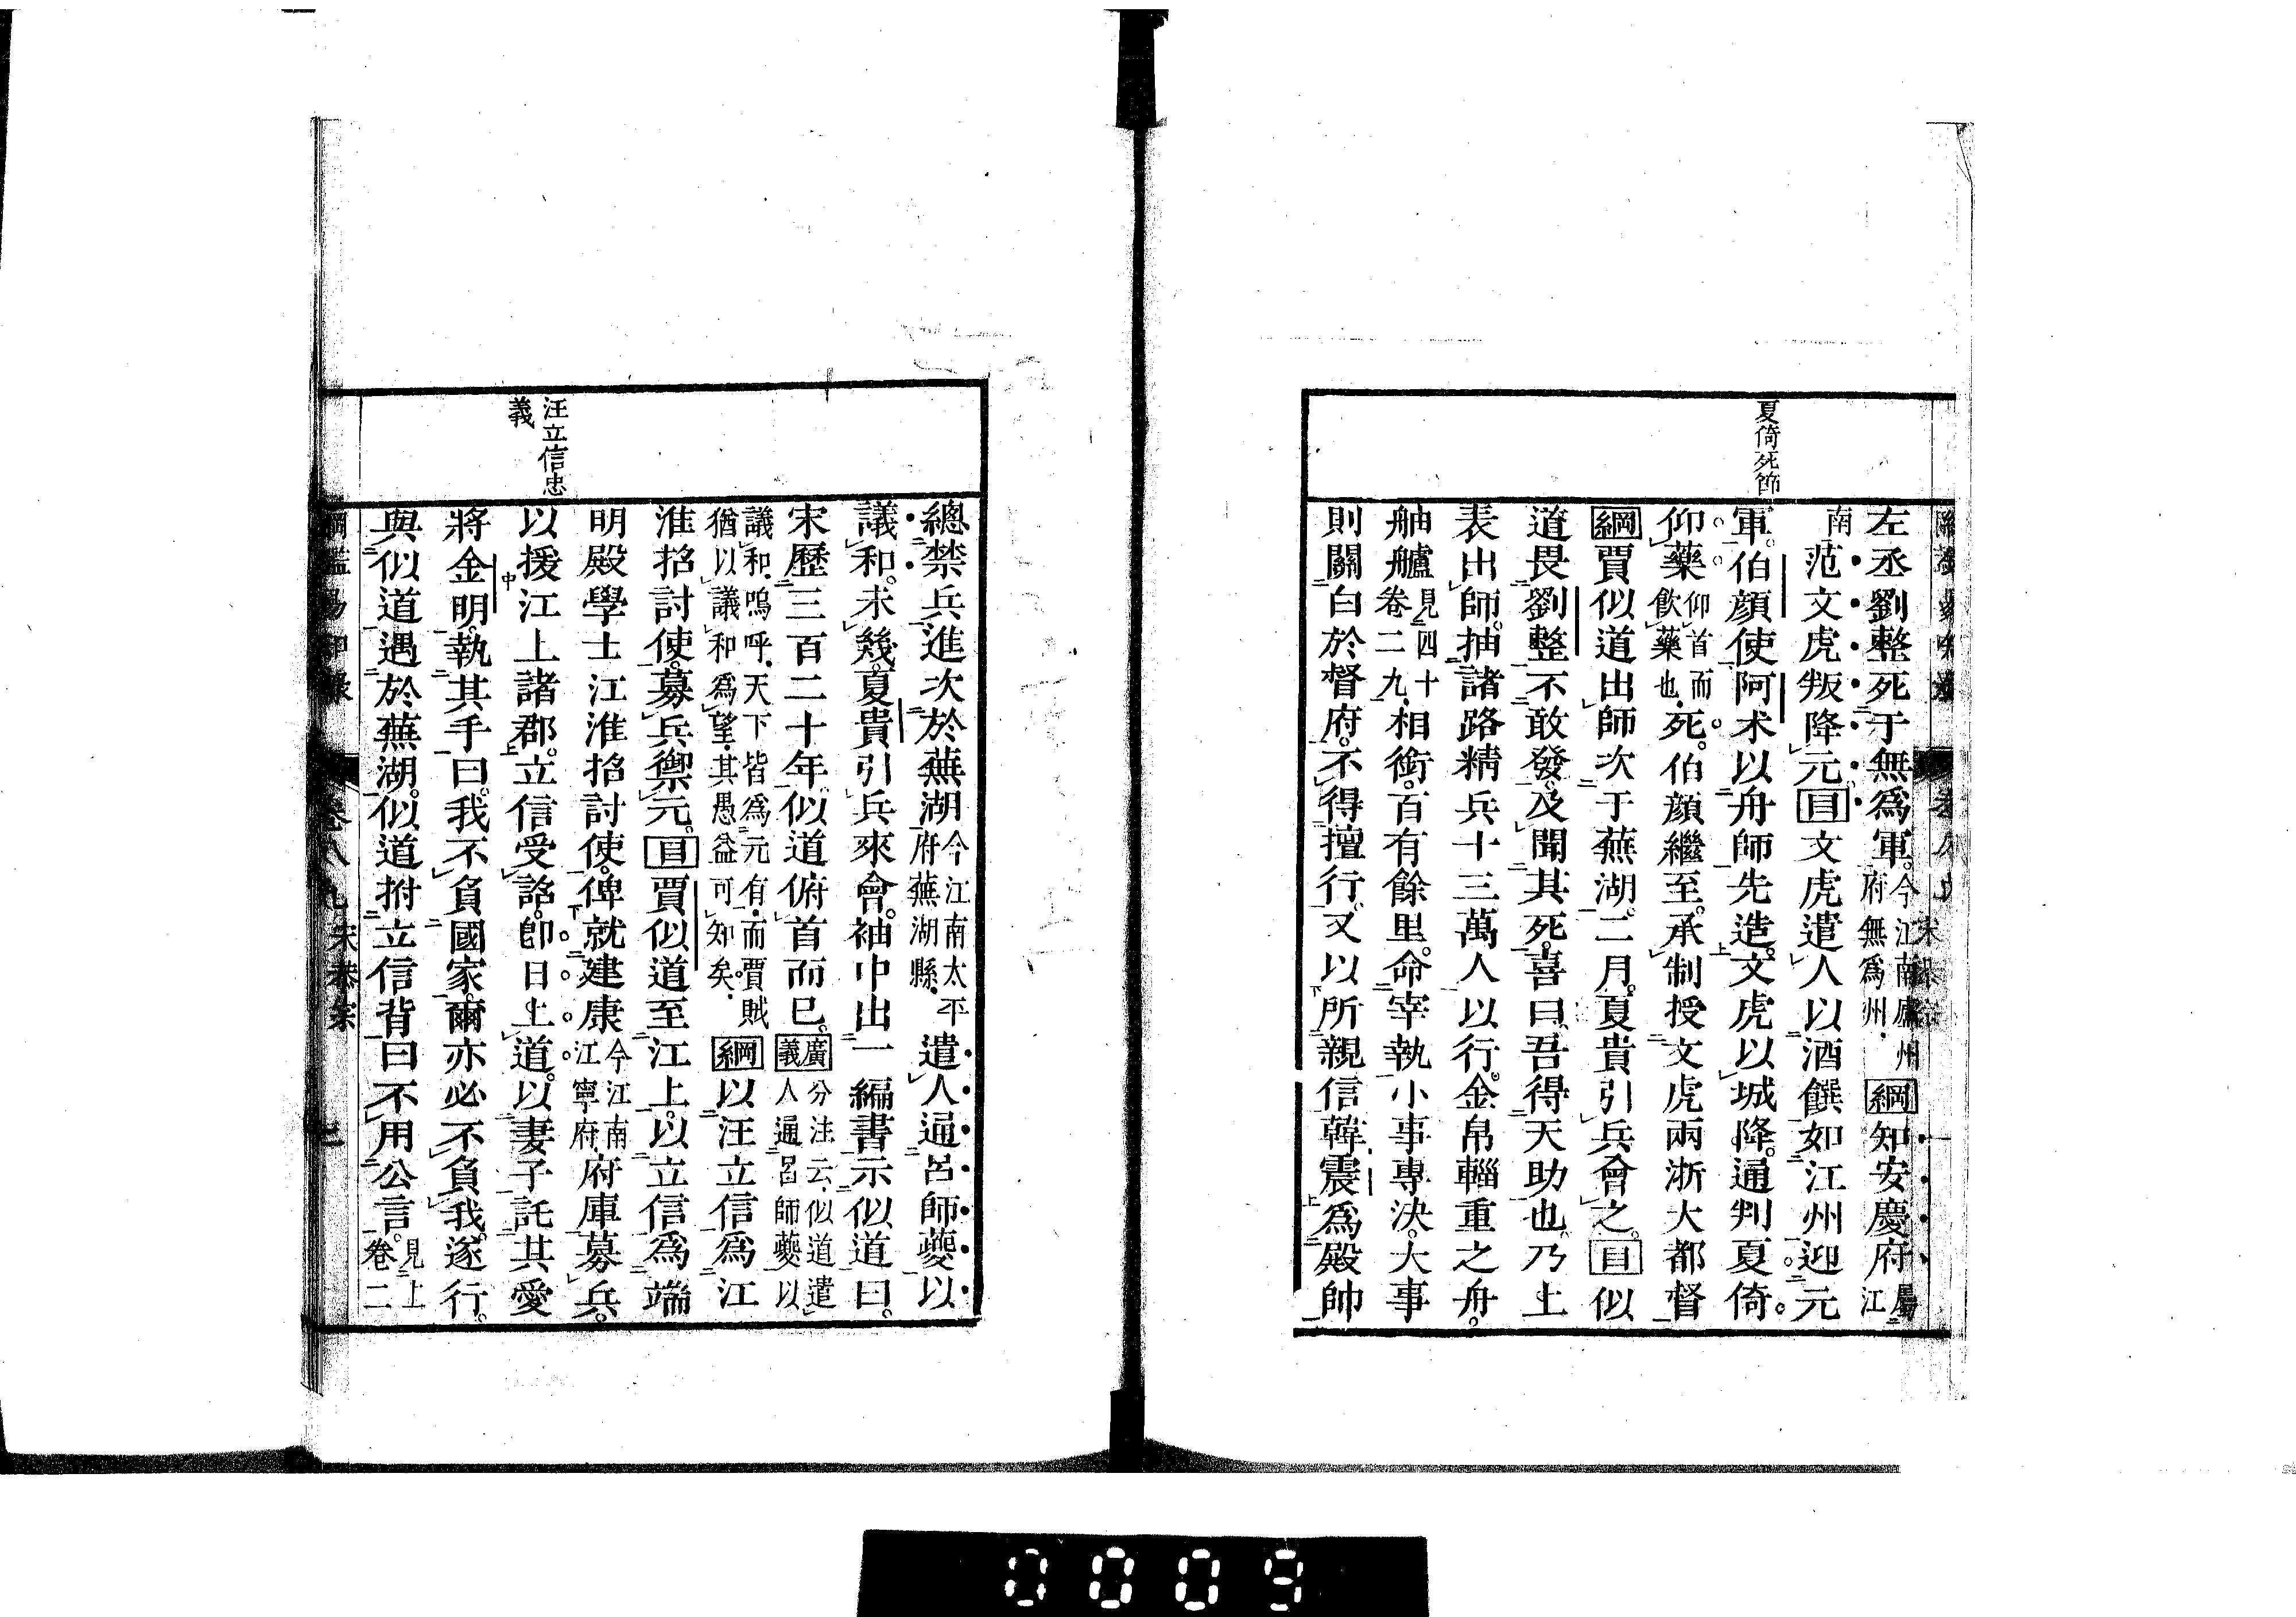 夏倚死節
左丞劉整死于無爲軍。今江南廬州府無爲州。綱知安慶府屬江
南范文虎叛降元。目文虎遣人以酒饌如江州迎元
軍。伯顏使阿术以舟師先造。文虎以城降。通判夏倚
仰藥仰首而飲藥也死。伯顏繼至。承制授文虎兩浙大都督
綱賈似道出師次于蕪湖。二月。夏貴引兵會之。目似
道畏劉整不敢發。及聞其死。喜曰。吾得天助也。乃上
表出師。抽諸路精兵十三萬人以行。金帛輜重之舟。
舳艫見四十卷二九相銜。百有餘里。命宰執小事專決。大事
則關白於督府。不得擅行。又以所親信韓震爲殿帥
汪立信忠義
總禁兵進次於蕪湖今江南太平府蕪湖縣遣人通呂師夔以
議和。未幾。夏貴引兵來會。袖中出一編書示似道曰。
宋歷三百二十年。似道俯首而已。廣義分注云似道遣人通呂師夔以
議和。嗚呼。天下皆爲元有。而賈賊猶以議和爲望。其愚益可知矣。綱以汪立信爲江
淮招討使。募兵禦元。目賈似道至江上。以立信爲端
明殿學士江淮招討使。俾就建康今江南江寧府府庫募兵。
以援江上諸郡。立信受詔。卽日上道。以妻子託其愛
將金明。執其手曰。我不負國家。爾亦必不負我。遂行。
與似道遇於蕪湖。似道拊立信背曰不用公言。見上卷二
卷八九 宋恭宗
0009